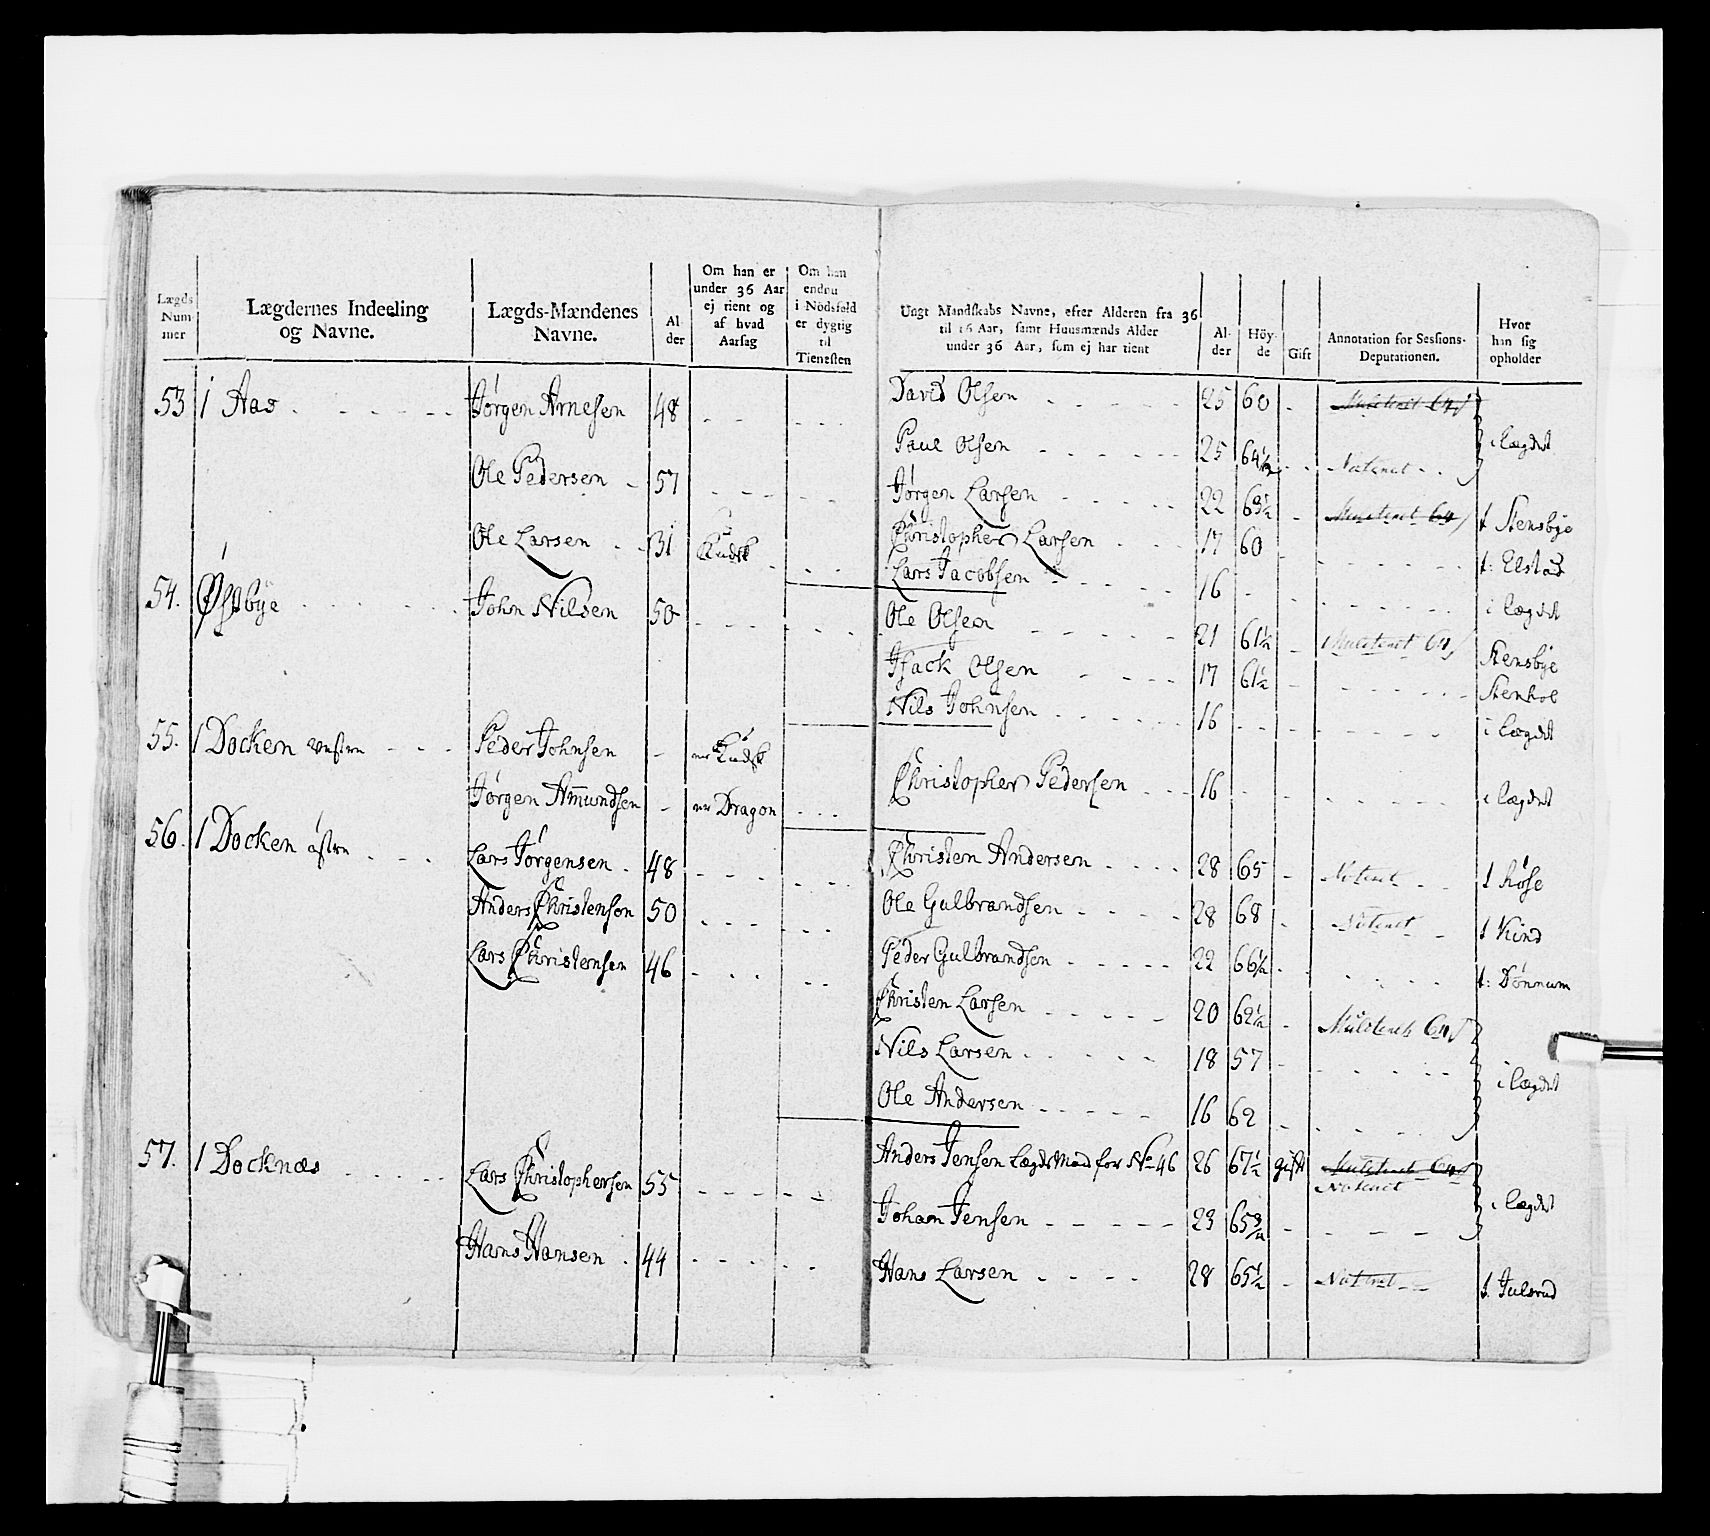 Lægds Num- mer
Lægdernes Indeeling og Navne.
Lægds-Mændenes Navne.
Al- der
Om han er under 36 Aar ej tient og af hvad Aarsag
Om han endnu i Nödsfald er dygtig til Tienesten
Ungt Mandskabs Navne, efter Alderen fra 36 til 16 Aar, samt Huusmænds Alder under 36 Aar, som ej har tient
Al- der
Höy- de
Gift
Annotation for Sessions- Deputationen.
Hvor han sig opholder
53 1 Aas Jørgen Arnesen 48
David Olsen 25 60
Paul Olsen 25 64½ Noteret i lægdet
Ole Pedersen 57
Jørgen Larsen 22 63½ t Stensbye
Ole Larsen 31 Kudsk
Christopher Larsen 17 60 t: Elstad
Lars Jacobsen 16 i lægdet
54. Østbye John Nilsen 50
Ole Olsen 21 61½ Stensbye
Isack Olsen 17 61½ Stenhol
Nils Johnsen 16 i lægdet
55. 1 Docken vestre Peder Johnsen er Kudsk
Christopher Pedersen 16 i lægdet
Jørgen Amundsen er Dragon
56. 1 Docken østre Lars Jørgensen 48
Christen Andersen 28 65 Noteret t Røse
Anders Christensen 50
Ole Gulbrandsen 28 68 Noteret t Kind
Lars Christensen 46
Peder Gulbrandsen 22 66½ t: Dönnum
Christen Larsen 20 62½
Nils Larsen 18 57 i lægdet
Ole Andersen 16 62
57. 1 Docknæs Lars Christophersen 55
Anders Jensen LægdsMad for No 46 26 67½ gift Noteret
Johan Jensen 23 65¾ i lægdet
Hans Hansen 44
Hans Larsen 28 65½ Noteret t. Julsrud